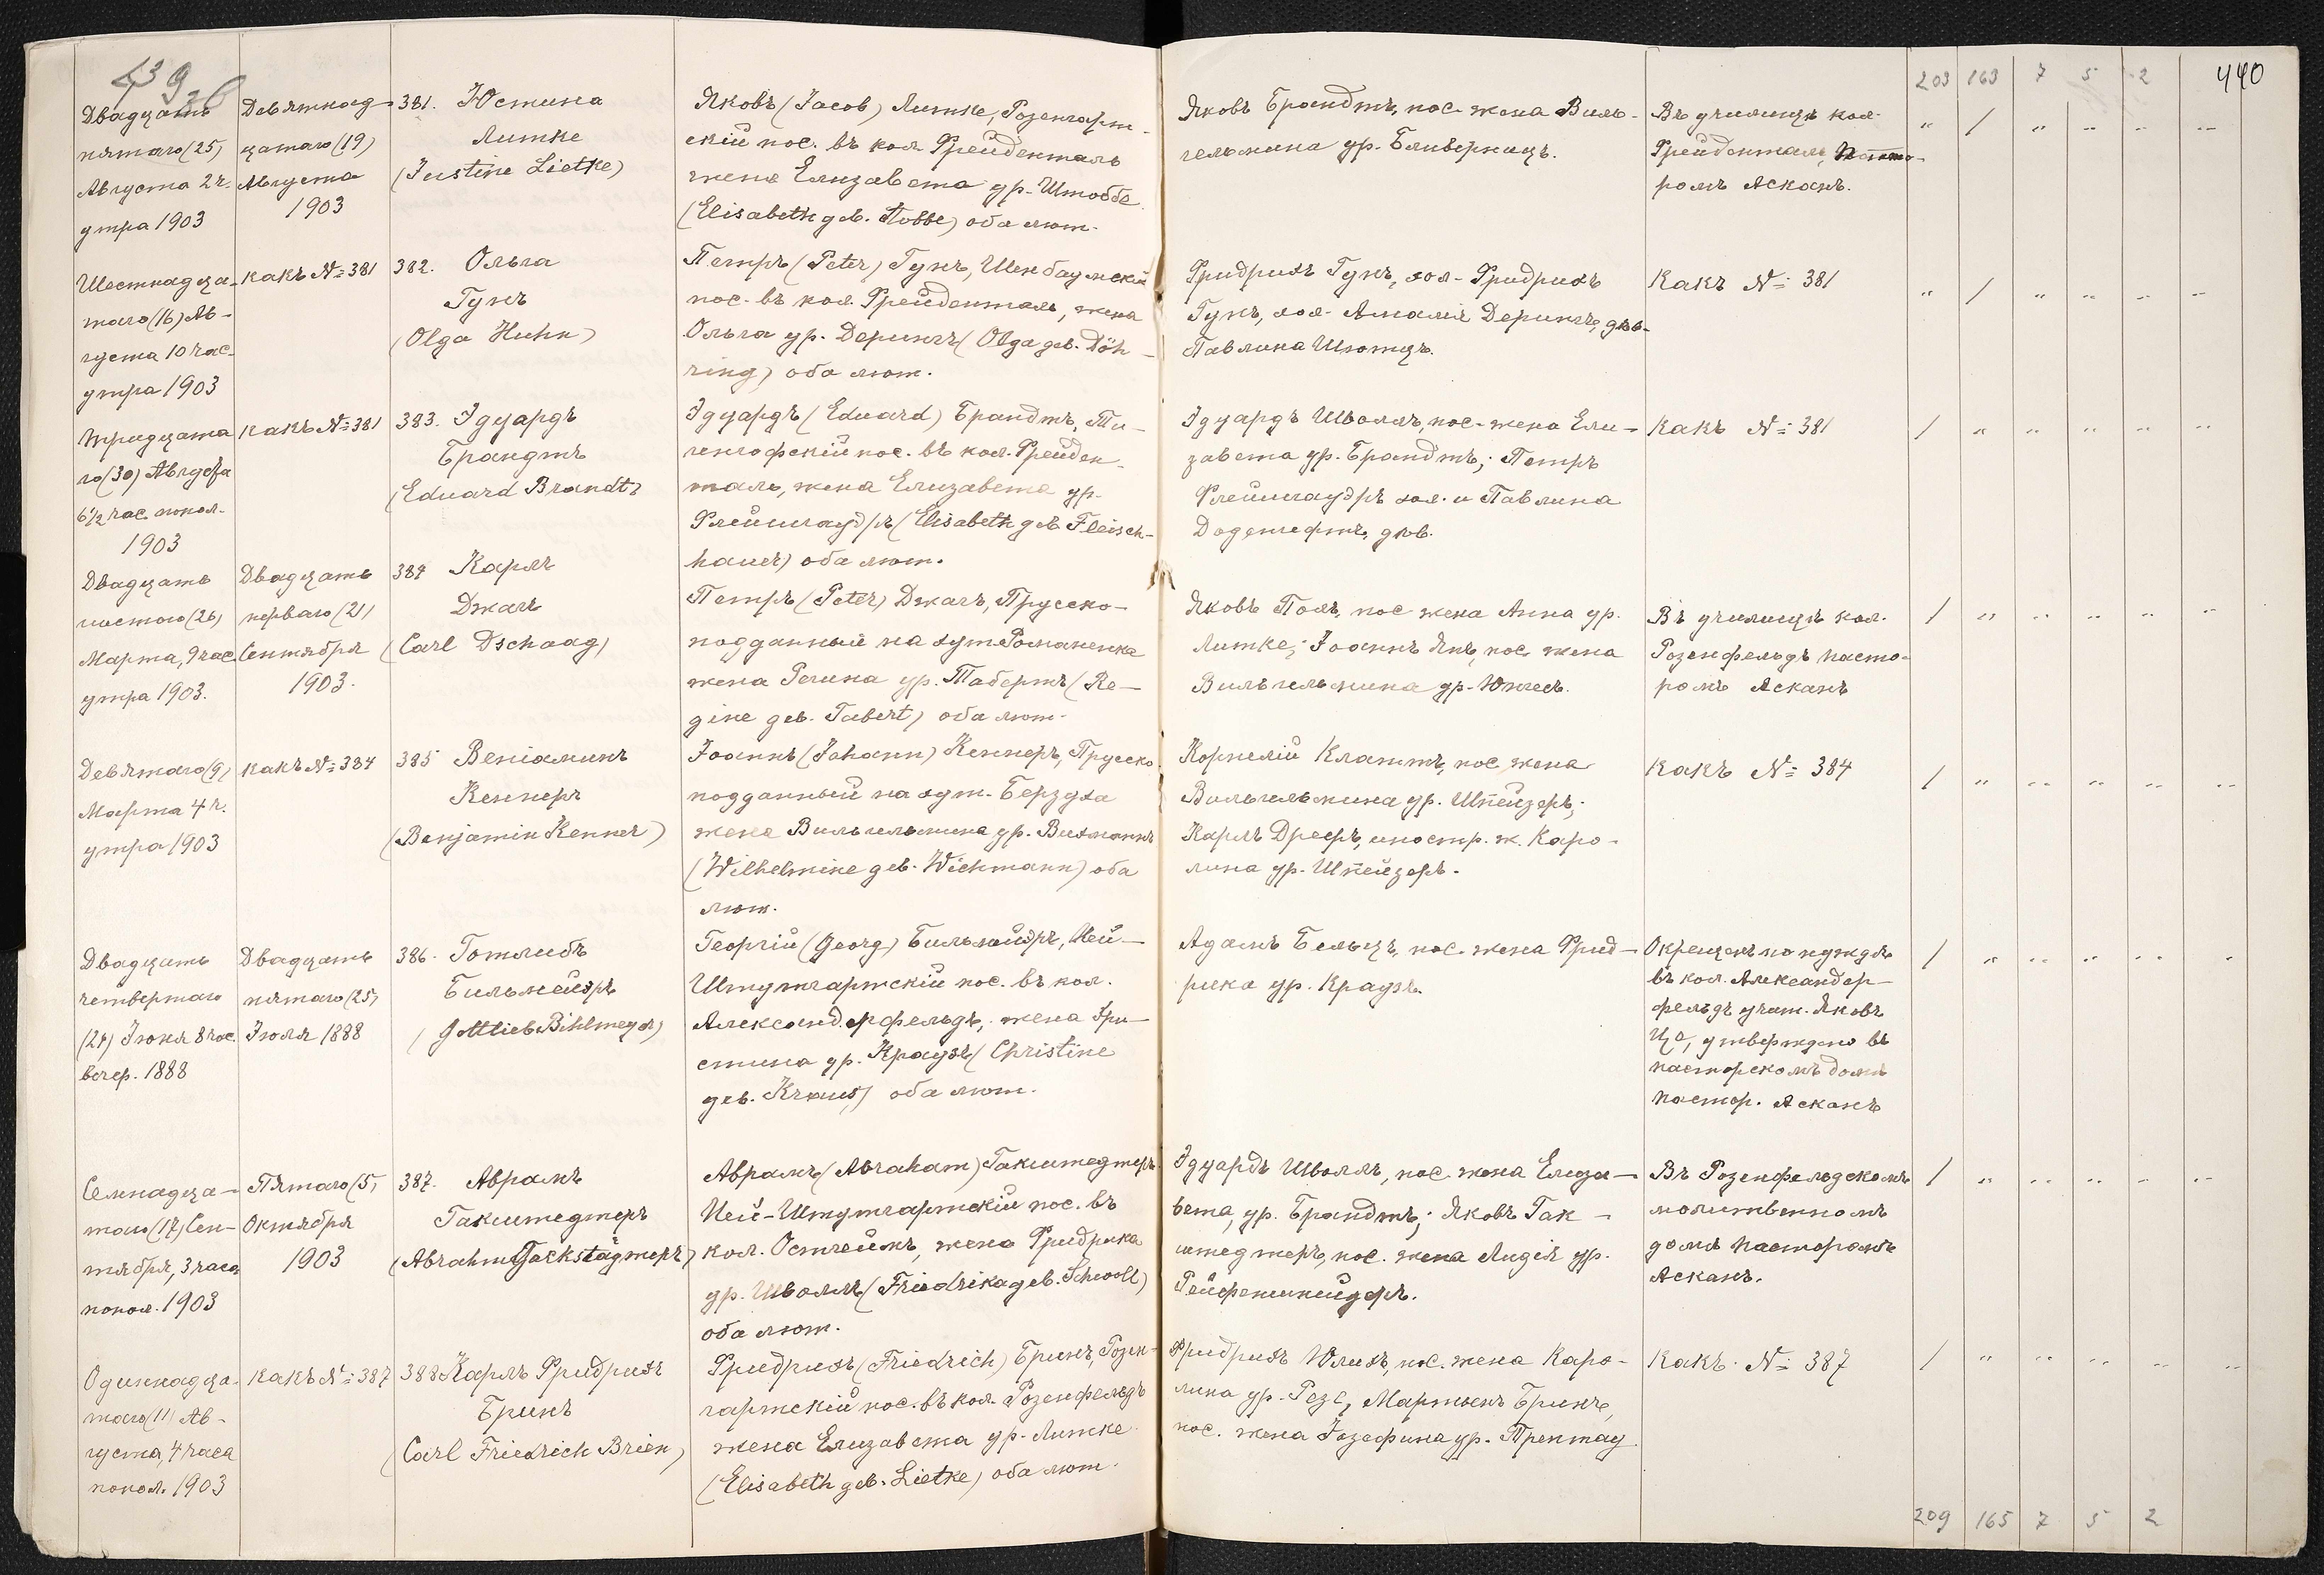 439
203 163 7 5 2
440
Двадцать
пятаго (25)
Августа 2 ч.
утра 1903
Девятнад-
цатаго (19)
Августа
1903
381. Юстина
Литке
(Justine Lietke)
Яковъ (Jacob) Литке, Розенгарт-
скій пос. въ кол. Фрейденталь
жена Елизавета ур. Штоббе
(Elisabeth geb. Stobbe) оба лют.
Яковъ Брандтъ, пос. жена Виль-
гельмина ур. Бливерницъ.
Въ училищѣ кол.
Фрейденталь, пасто-
ромъ Асканъ.
" / " " " "
Шестнадца-
таго (16) Ав-
густа 10 час.
утра 1903
какъ №381
382. Ольга
Гунъ
(Olga Huhn)
Петръ (Peter) Гунъ, Шенбаумскій
пос. въ кол. Фрейденталь, жена
Ольга ур. Дерингъ (Olga geb. Döh-
ring) оба лют.
Фридрихъ Гунъ, хол. Фридрихъ
Гунъ, хол. Амалія Дерингъ, дѣв.
Павлина Шютцъ.
Какъ № 381
" / " " " "
Тридцата
го (30) Августа
6½ час. попол.
1903
какъ №381
383. Эдуардъ
Брандтъ
(Eduard Brandt)
Эдуардъ (Eduard) Брандтъ, Ти-
генгофскій пос. въ кол. Фрейден-
таль, жена Елизавета ур.
Флейшгауэръ (Elisabeth geb. Fleisch-
hauer) оба лют.
Эдуардъ Шволль, пос. жена Ели-
завета ур. Брандтъ; Петръ
Флейшгауэръ хол. и Павлина
Доденгефтъ, дѣв.
Какъ № 381
/ " " " " "
Двадцать
шестого (26)
Марта, 9 час.
утра 1903.
Двадцать
перваго (21)
Сентября
1903.
384 Карлъ
Джагъ
(Carl Dschaag)
Петръ (Peter) Джагъ, Прусско-
подданный на хут. Романенка
жена Регина ур. Табертъ (Re-
gine geb. Tabert) оба лют.
Яковъ Поль, пос. жена Анна ур.
Литке; Іоаннъ Янъ, пос. жена
Вильгельмина ур.
Въ училищѣ кол.
Розенфельдъ пасто-
ромъ Асканъ
/ " " " " "
Девятаго (9)
Марта 4 ч.
утра 1903
какъ №384
385 Веніаминъ
Кеннеръ
(Benjamin Kenner)
Іоаннъ (Johann) Кеннеръ, Прусско
подданный на хут. Берзуха
жена Вильгельмина ур. Вихманнъ
(Wilhelmine geb. Wichmann) оба
лют.
Корнелій Клаттъ, пос. жена
Вильгельмина ур. Шпейзеръ;
Карлъ Дрееръ, иностр. ж. Каро-
лина ур. Шпейзеръ.
Какъ № 384
/ " " " " "
Двадцать
четвертаго
(24) Іюня 8 час.
вечер. 1888
Двадцать
пятаго (25)
Іюля 1888
386. Готлибъ
Бильмейеръ
(Gottlieb Bihlmeyer)
Георгій (Georg) Бильмейеръ, Ней-
Штутгартскій пос. въ кол.
Александерфельдъ, жена Хри-
стина ур. Краузъ (Christine
geb. Kraus) оба лют.
Адамъ Бельцъ, пос. жена Фрид-
рика ур. Краузъ.
Окрещенъ по нуждѣ
въ кол. Александер-
фельдъ учит. Яковъ
Ца, утверждено въ
пасторскомъ домѣ
пастор. Асканъ
/ " " " " "
Семнадца-
таго (17) Сен-
тября, 3 часа
попол. 1903
Пятаго (5)
Октября
1903
387. Абрамъ
Гакштедтеръ
(Abraham Hackstädtеръ)
Абрамъ (Abraham) Гакштедтеръ
Ней-Штутгартскій пос. въ
кол. Остгеймъ, жена Фридрика
ур. Шволль (Friedrika geb. Schwoll)
оба лют.
Эдуардъ Шволль, пос. жена Елиза-
вета, ур. Брандтъ; Яковъ Гак-
штедтеръ, пос. жена Лидія ур.
Рейфеншнейдеръ.
Въ Розенфельдскомъ
молитвенномъ
домѣ пасторомъ
Асканъ.
/ " " " " "
Одиннадца-
таго (11) Ав-
густа, 4 часа
попол. 1903
какъ №387
388 Карлъ Фридрихъ
Бринъ
(Carl Friedrich Brien)
Фридрихъ (Friedrich) Бринъ, Розен-
гартскій пос. въ кол. Розенфельдъ
жена Елизавета ур. Литке
(Elisabeth geb. Lietke) оба лют.
Фридрихъ Юлихъ, пос. жена Каро-
лина ур. Резе, Мартынъ Бринъ,
пос. жена Іозефина ур. Трептау.
Какъ № 387
/ " " " " "
209 165 7 5 2